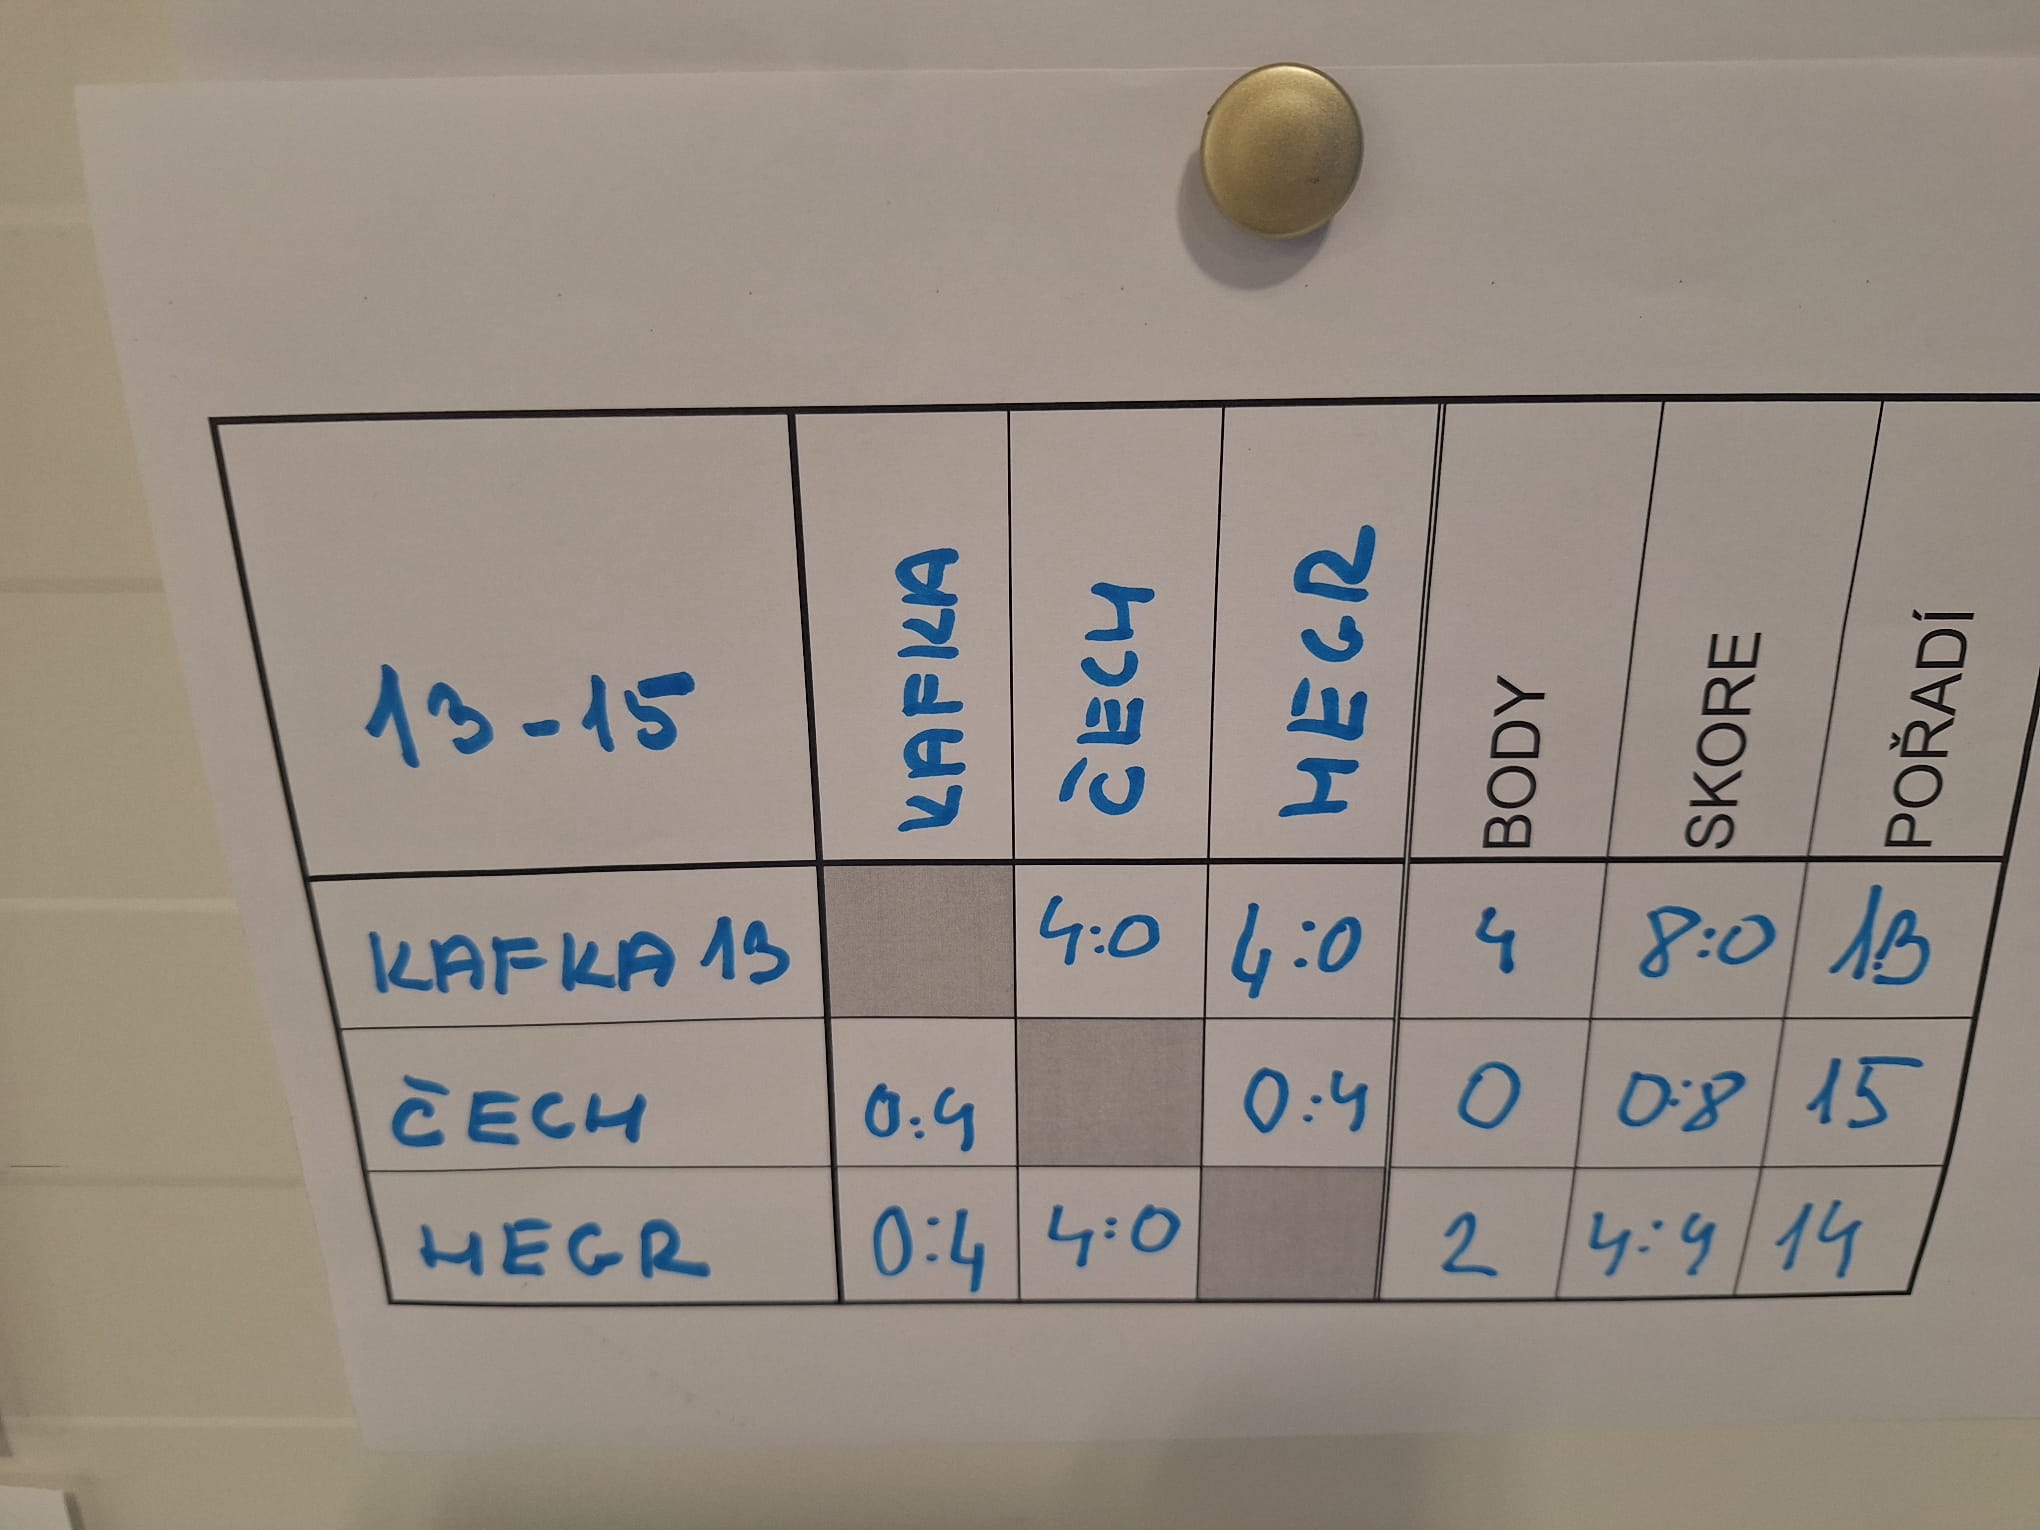 13-15 KAFKA ČECH HEGR BODY SKORE POŘADÍ
KAFKA 13 4:0 4:0 4 8:0 13
ČECH 0:4 0:4 0 0:8 15
HEGR 0:4 4:0 2 4:4 14